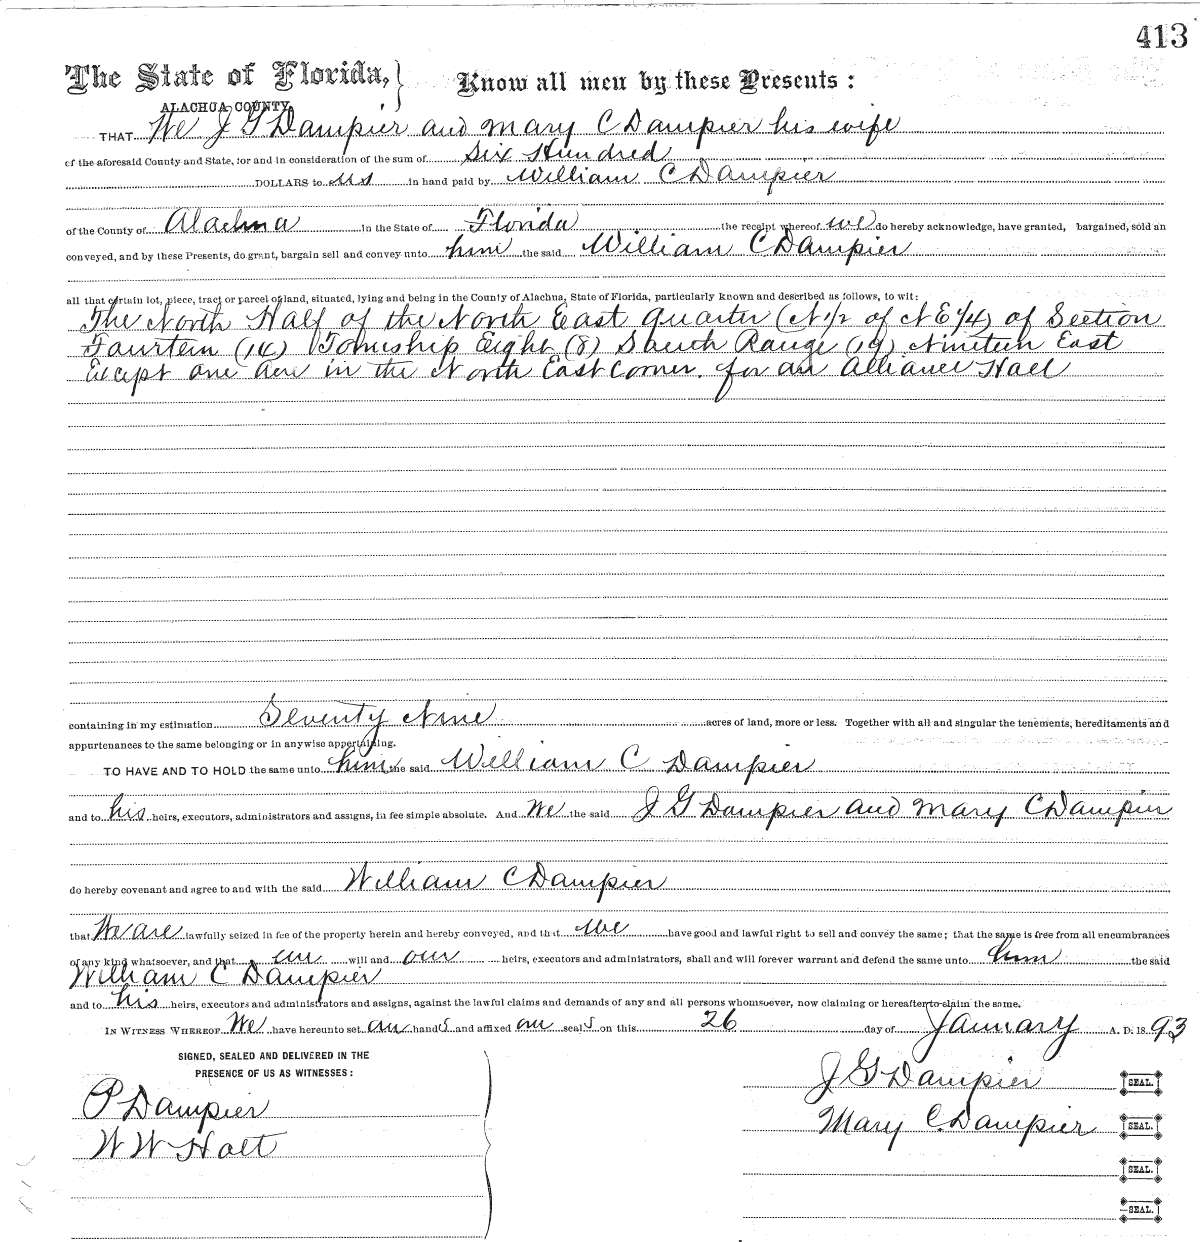 413
The State of Florida, } Know all men by these Presents:
ALACHUA COUNTY.
THAT We J G Dampier and Mary C Dampier his wife
of the aforesaid County and State, for and in consideration of the sum of Six Hundred
DOLLARS to us in hand paid by William C Dampier
of the County of Alachua in the State of Florida the receipt whereof we do hereby acknowledge, have granted, bargained, sold an
conveyed, and by these Presents, do grant, bargain sell and convey unto him the said William C Dampier
all that certain lot, piece, tract or parcel of land, situated, lying and being in the County of Alachua, State of Florida, particularly known and described as follows, to wit:
The North Half of the North East quarter (N 1/2 of N E 1/4) of Section
Fourteen (14) Township Eight (8) South Range (19) Nineteen East
Except one acre in the North East Corner. for an Alliance Hall
containing in my estimation Seventy Nine acres of land, more or less. Together with all and singular the tenements, hereditaments and
appurtenances to the same belonging or in anywise appertaining.
TO HAVE AND TO HOLD the same unto him the said William C Dampier
and to his heirs, executors, administrators and assigns, in fee simple absolute. And We the said J G Dampier and Mary C Dampier
do hereby covenant and agree to and with the said William C Dampier
that We are lawfully seized in fee of the property herein and hereby conveyed, and that we have good and lawful right to sell and convey the same; that the same is free from all encumbrances
of any kind whatsoever, and that we will and our heirs, executors and administrators, shall and will forever warrant and defend the same unto him the said
William C Dampier
and to his heirs, executors and administrators and assigns, against the lawful claims and demands of any and all persons whomsoever, now claiming or hereafter to claim the same.
IN WITNESS WHEREOF We have hereunto set our hands and affixed our seals on this 26 day of January A. D. 1893
SIGNED, SEALED AND DELIVERED IN THE
PRESENCE OF US AS WITNESSES:
J G Dampier SEAL.
P Dampier
Mary C. Dampier SEAL.
W W Holt
SEAL.
SEAL.